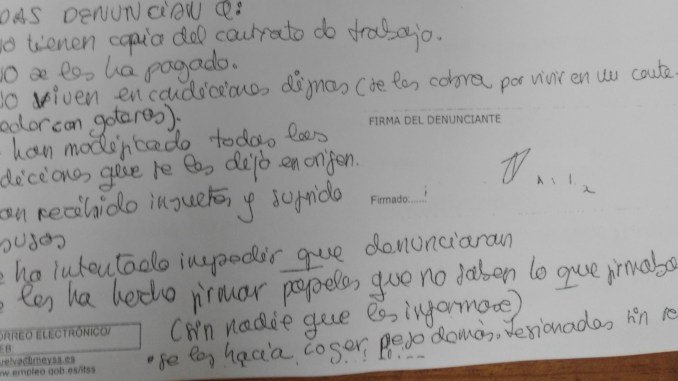 DAS DENUNCIAN Q:
NO tienen copia del contrato de trabajo.
NO se les ha pagado.
NO viven en condiciones dignas (se les cobra por vivir en un conte-
nedor con goteras).
han modificado todas las
diciones que se les dijo en origen.
han recibido insultos y sufrido
abusos
ha intentado impedir que denunciaran
les ha hecho firmar papeles que no saben lo que firmaba
(sin nadie que les informase)
se les hacía coger peso demás. lesionadas sin re
FIRMA DEL DENUNCIANTE
Firmado......
CORREO ELECTRÓNICO/
EB:
uelva@meyss.es
w.empleo.gob.es/itss